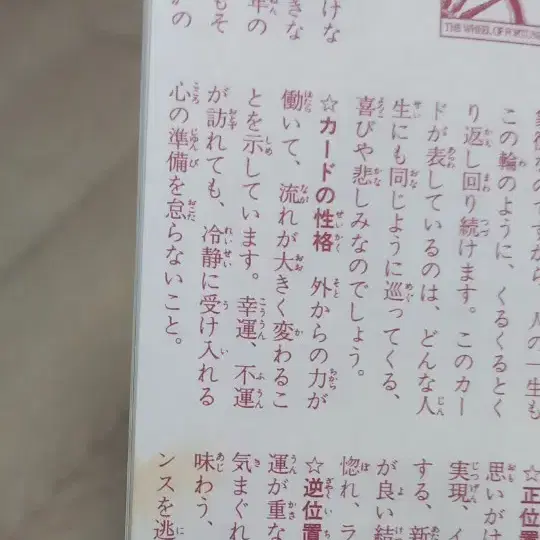 THE WHEEL OF FORTUNE
けな
きな
年の
もそ
この輪のように、くるくるとく
り返し回り続けます。このカー
ドが表しているのは、どんな人
生にも同じように巡ってくる、
喜びや悲しみなのでしょう。
☆カードの性格 外からの力が
働いて、流れが大きく変わるこ
とを示しています。幸運、不運
が訪れても、冷静に受け入れる
心の準備を怠らないこと。
☆正位置
思いがけ
実現、イ
する、新
が良い結
惚れ、ラ
☆逆位置
運が重な
気まぐれ
味わう、
ンスを逃